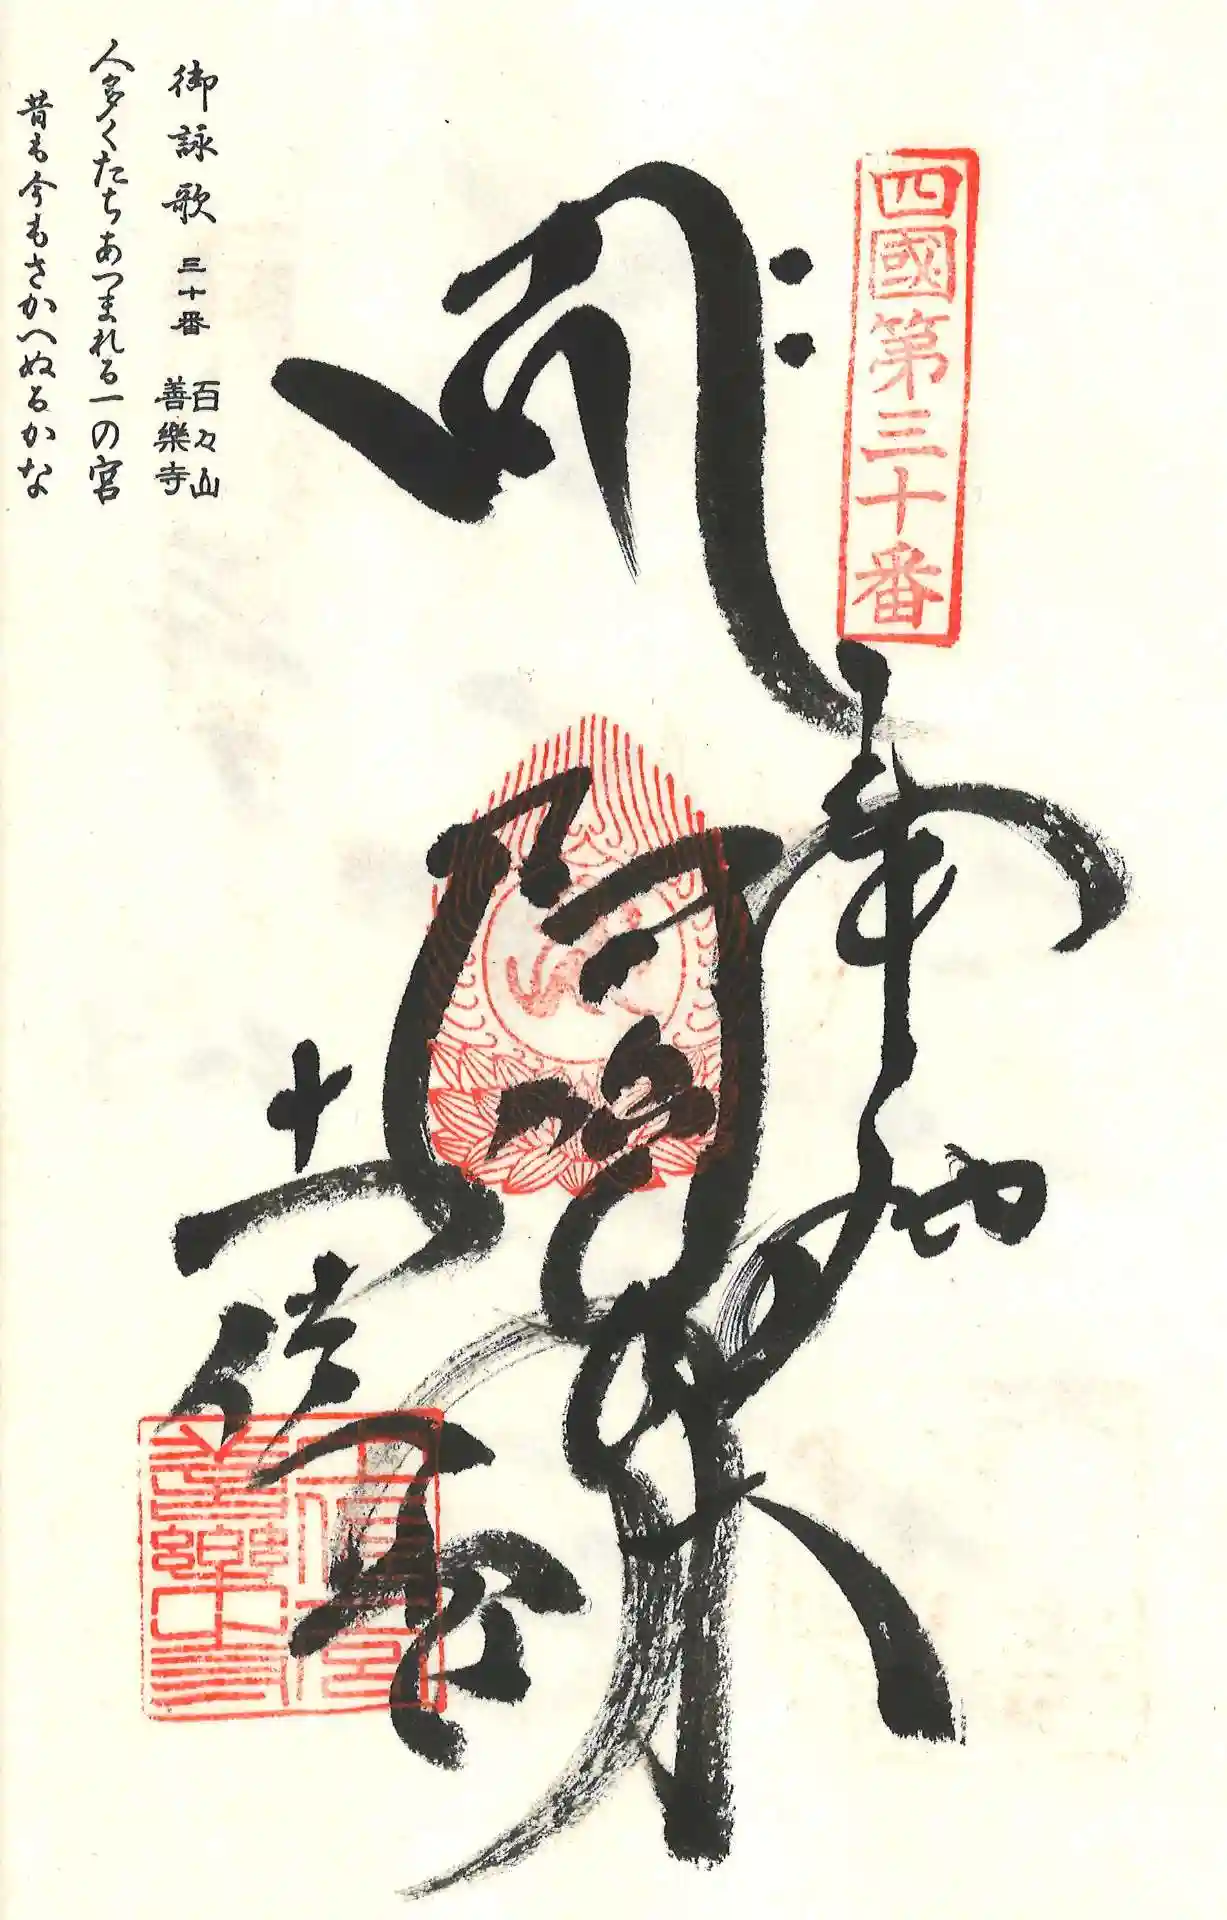 四國第三十番
奉納
阿弥陀如来
土佐一宮
土佐一宮
善樂寺
御詠歌 三十番 百々山 善樂寺
人多くたちあつまれる一の宮
昔も今もさかへぬるかな